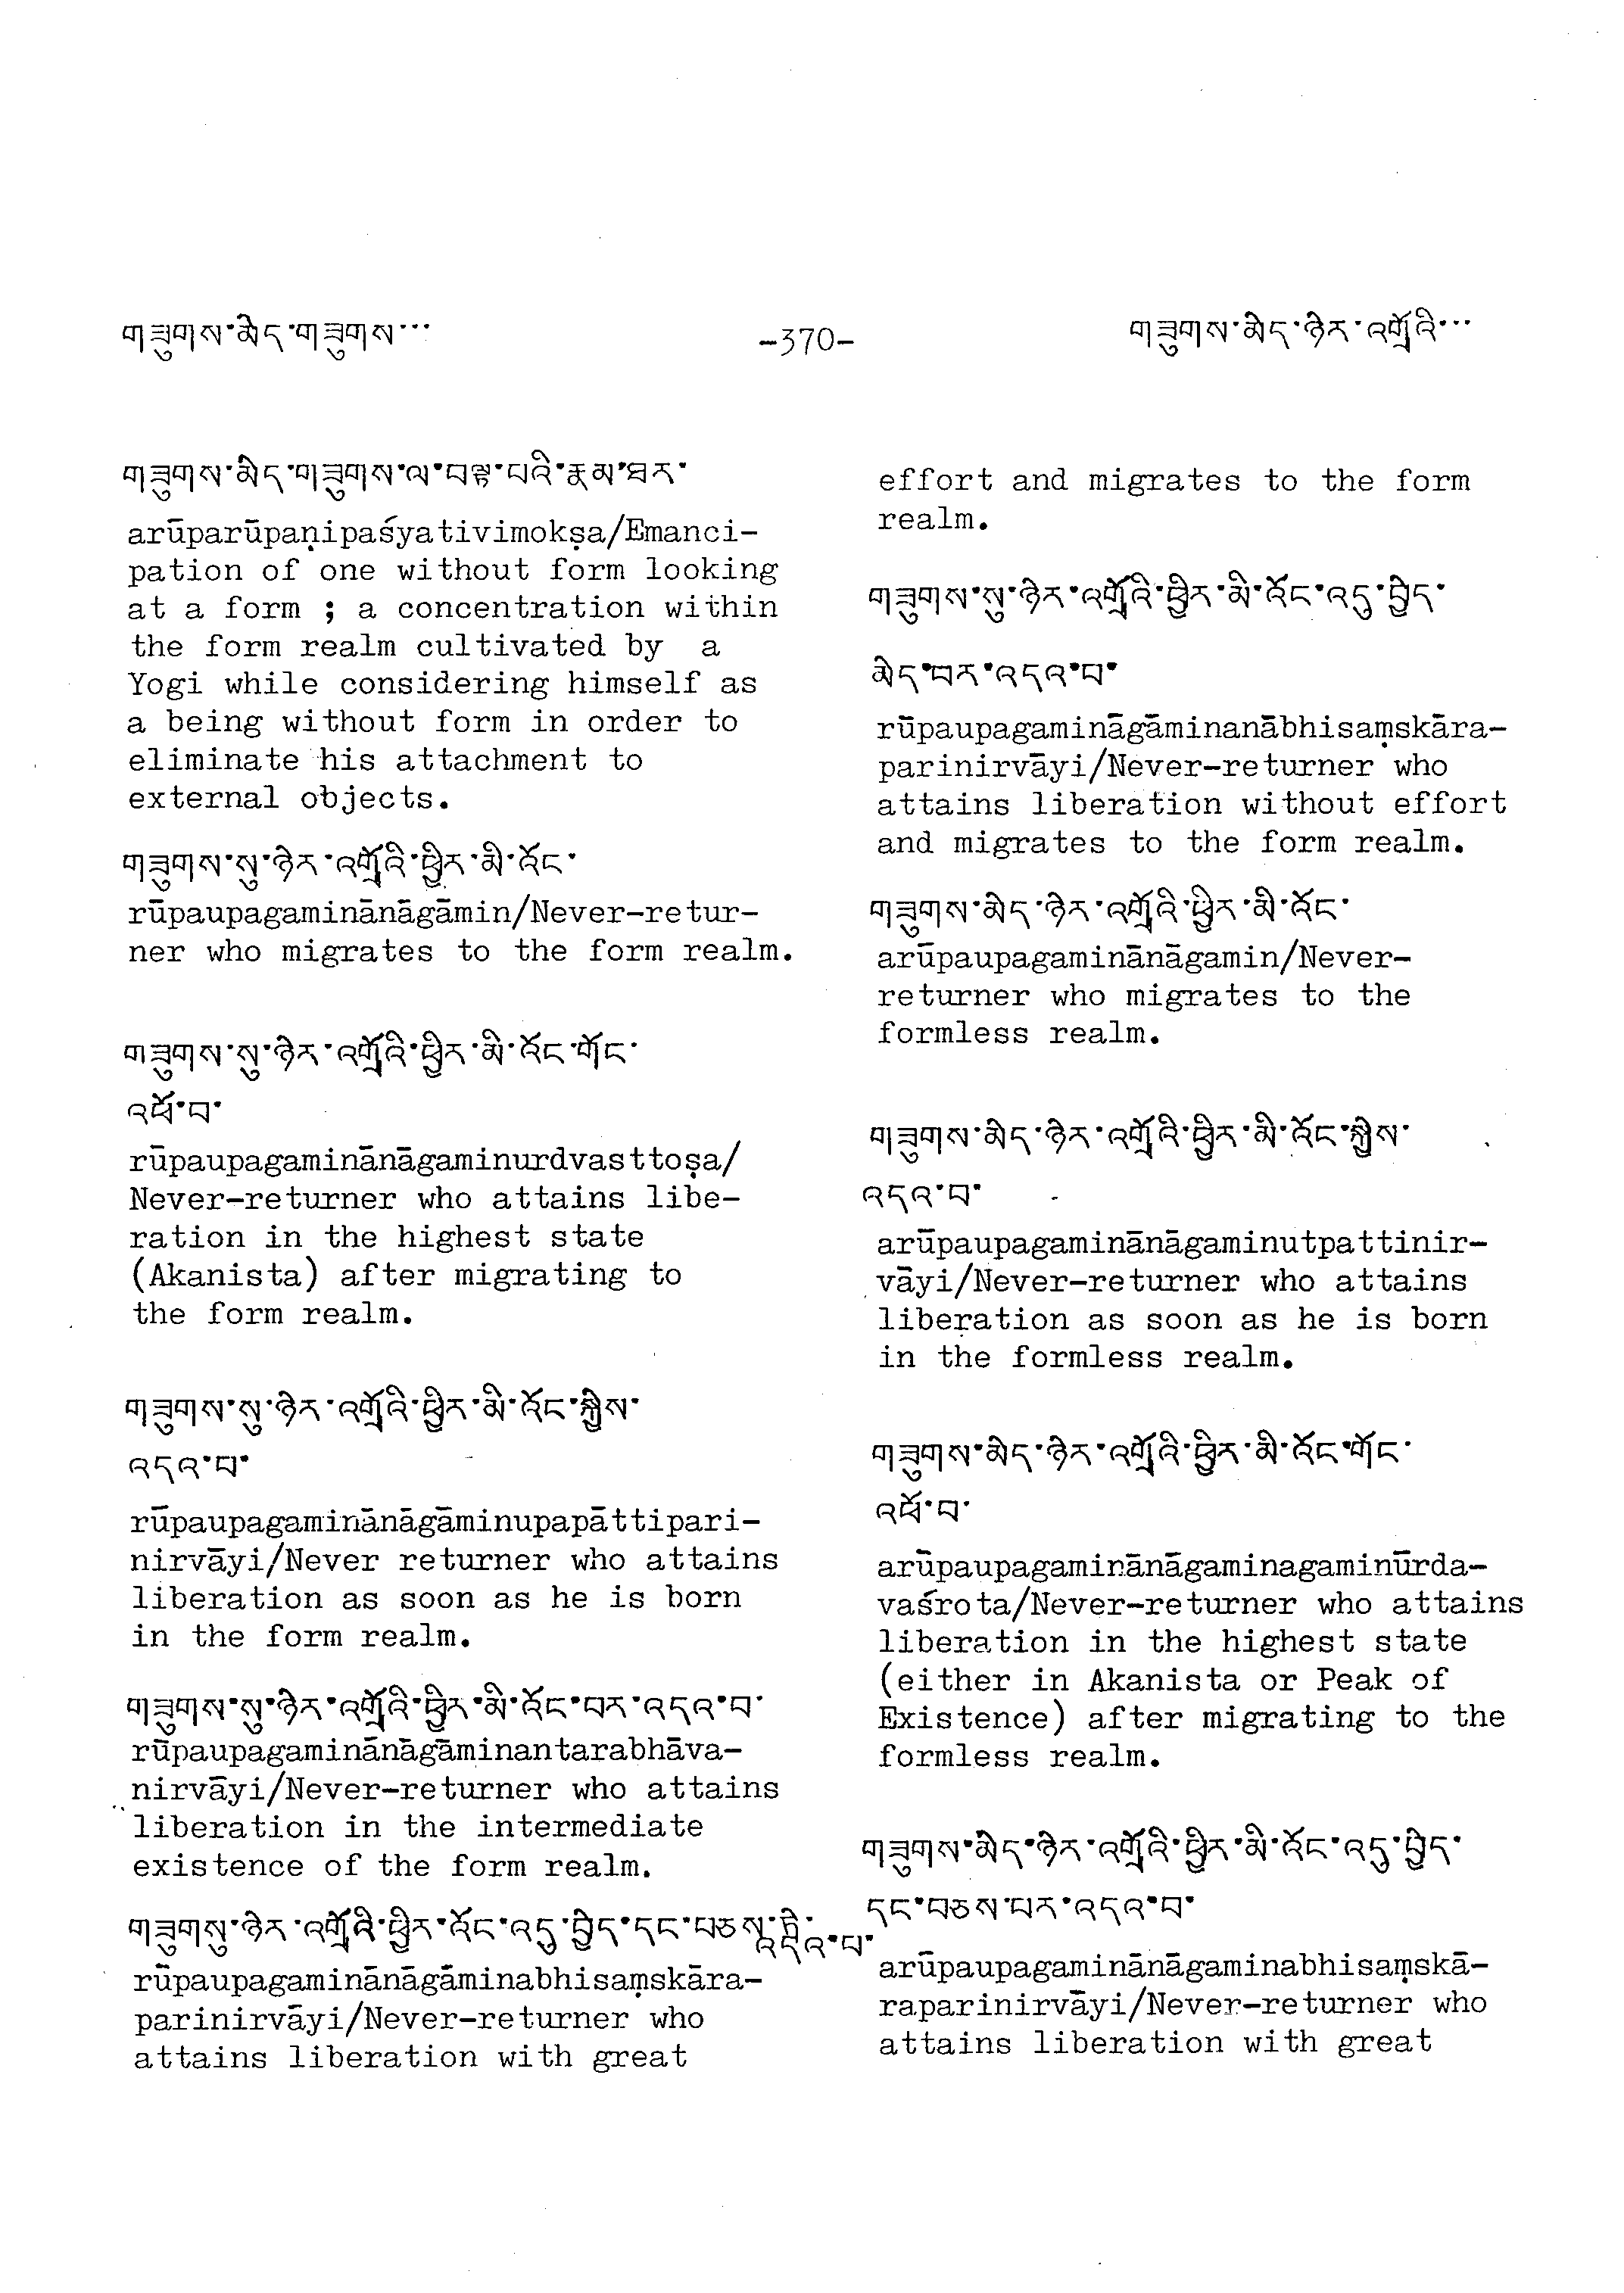 གཟུགས་མེད་གཟུགས...
-370-
གཟུགས་མེད་ཉེར་འགྲོའི...
གཟུགས་མེད་གཟུགས་ལ་བལྟ་བའི་རྣམ་ཐར་
arūparūpaṇipaśyativimokṣa/Emanci-
pation of one without form looking
at a form ; a concentration within
the form realm cultivated by a
Yogi while considering himself as
a being without form in order to
eliminate his attachment to
external objects.
གཟུགས་སུ་ཉེར་འགྲོའི་ཕྱིར་མི་འོང་
rūpaupagaminānāgāmin/Never-retur-
ner who migrates to the form realm.
གཟུགས་སུ་ཉེར་འགྲོའི་ཕྱིར་མི་འོང་གོང་
འཕོ་བ་
rūpaupagaminānāgaminurdvasttoṣa/
Never-returner who attains libe-
ration in the highest state
(Akanista) after migrating to
the form realm.
གཟུགས་སུ་ཉེར་འགྲོའི་ཕྱིར་མི་འོང་སྐྱེས་
འདའ་བ་
rūpaupagaminānāgāminupapāttipari-
nirvāyi/Never returner who attains
liberation as soon as he is born
in the form realm.
གཟུགས་སུ་ཉེར་འགྲོའི་ཕྱིར་མི་འོང་བར་འདའ་བ་
rūpaupagaminānāgāminantarabhāva-
nirvāyi/Never-returner who attains
liberation in the intermediate
existence of the form realm.
གཟུགསུ་ཉེར་འགྲོའི་ཕྱིར་འོང་འདུ་བྱེད་དང་བཅས་ཏེ་
འདའ་བ་
rūpaupagaminānāgāminabhisaṃskāra-
parinirvāyi/Never-returner who
attains liberation with great
effort and migrates to the form
realm.
གཟུགས་སུ་ཉེར་འགྲོའི་ཕྱིར་མི་འོང་འདུ་བྱེད་
མེད་བར་འདའ་བ་
rūpaupagamināgāminanābhisaṃskāra-
parinirvāyi/Never-returner who
attains liberation without effort
and migrates to the form realm.
གཟུགས་མེད་ཉེར་འགྲོའི་ཕྱིར་མི་འོང་
arūpaupagaminānāgamin/Never-
returner who migrates to the
formless realm.
གཟུགས་མེད་ཉེར་འགྲོའི་ཕྱིར་མི་འོང་སྐྱེས་
འདའ་བ་
arūpaupagaminānāgaminutpattinir-
vāyi/Never-returner who attains
liberation as soon as he is born
in the formless realm.
གཟུགས་མེད་ཉེར་འགྲོའི་ཕྱིར་མི་འོང་གོང་
འཕོ་བ་
arūpaupagaminānāgaminagaminūrda-
vaśrota/Never-returner who attains
liberation in the highest state
(either in Akanista or Peak of
Existence) after migrating to the
formless realm.
གཟུགས་མེད་ཉེར་འགྲོའི་ཕྱིར་མི་འོང་འདུ་བྱེད་
དང་བཅས་པར་འདའ་བ་
arūpaupagaminānāgaminabhisaṃskā-
raparinirvāyi/Never-returner who
attains liberation with great